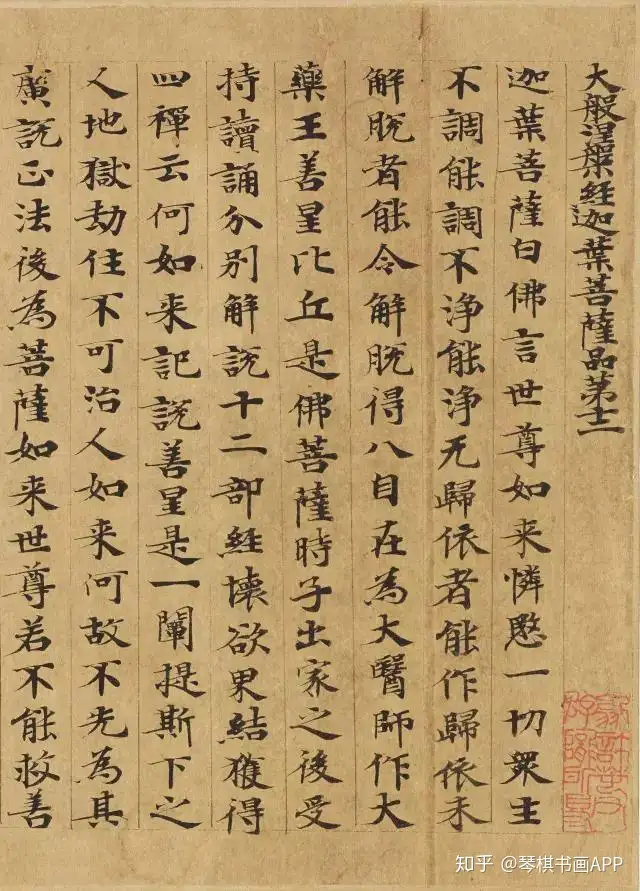 大般涅槃經迦葉菩薩品第十二
迦葉菩薩白佛言世尊如来憐愍一切衆生
不調能調不淨能淨无歸依者能作歸依未
解脫者能令解脫得八自在為大醫師作大
藥王善星比丘是佛菩薩時子出家之後受
持讀誦分別解說十二部經壞欲界結獲得
四禪云何如来記說善星是一闡提斯下之
人地獄劫住不可治人如来何故不先為其
廣說正法後為菩薩如来世尊若不能救善
知乎 @琴棋书画APP